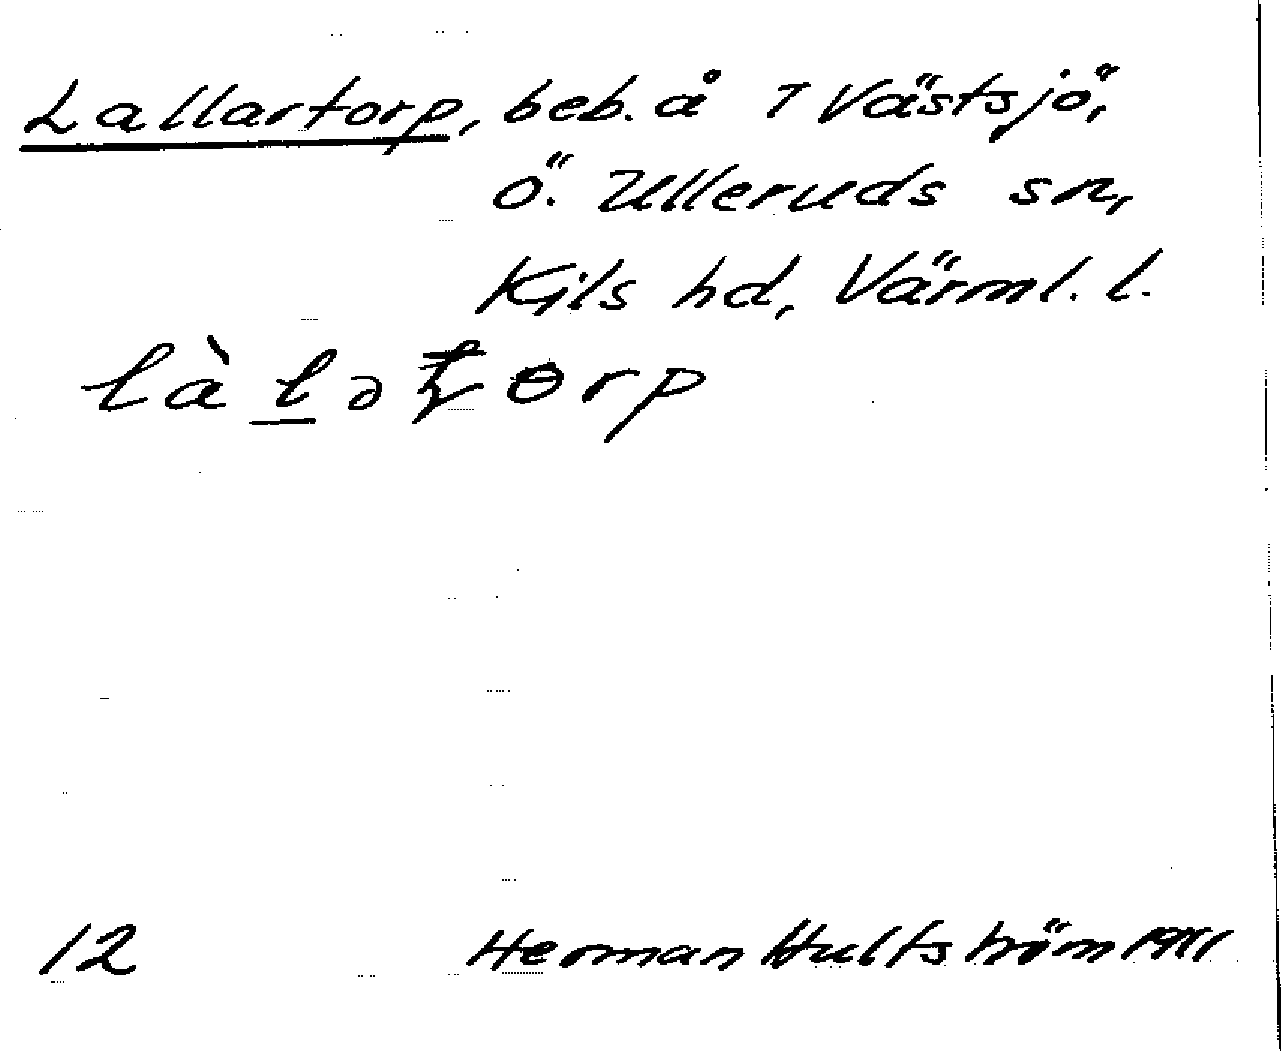 Lallartorp, beb. å T Västsjö,
Ö. Ulleruds sn,
Kils hd, Värml. l.
12 Herman Hultström